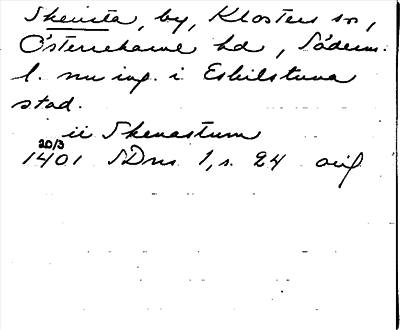 Skevsta, by, Klosters sn,
Österrekarne hd, Söderm.
l. nu ing. i Eskilstuna
stad.
ii Skenastum
20/3
1401 SDns 1, s. 24 orig